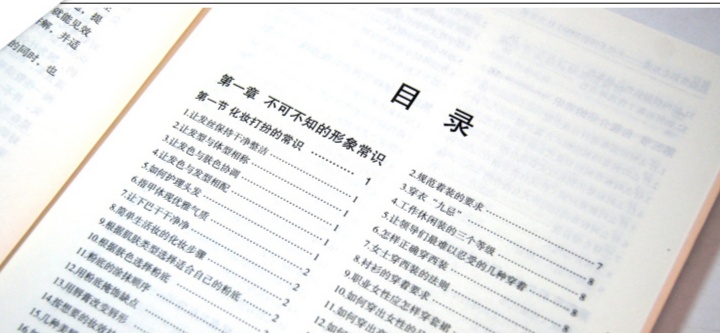 提
就能见效
解，并适
的同时，也
目 录
第一章 不可不知的形象常识
第一节 化妆打扮的常识 ………… 1
1.让发丝保持干净整洁 ………… 1
2.让发型与体型相称 ………… 1
3.让发色与肤色协调 ………… 1
4.让发色与发型相配 ………… 1
5.如何护理头发
6.指甲体现优雅气质
7.让下巴干干净净 ………… 2
8.简单生活妆的化妆步骤 ………… 2
9.根据肌肤类型选择适合自己的粉底 ………… 2
10.根据肤色选择粉底
11.粉底的涂抹顺序
12.用粉底掩饰缺点
13.用唇膏改变唇形
14.按想要的妆效
15.几种美
2.规范着装的要求
3.穿衣“九忌” ………… 7
4.工作休闲装的三个等级 ………… 8
5.让领导们最难以忍受的几种穿着 ………… 8
6.怎样正确穿西装
7.女士穿西装的法则
8.衬衫的穿着要求
9.职业女性应怎样穿套裙
10.如何穿出女性的
11.如何穿出
12.如何